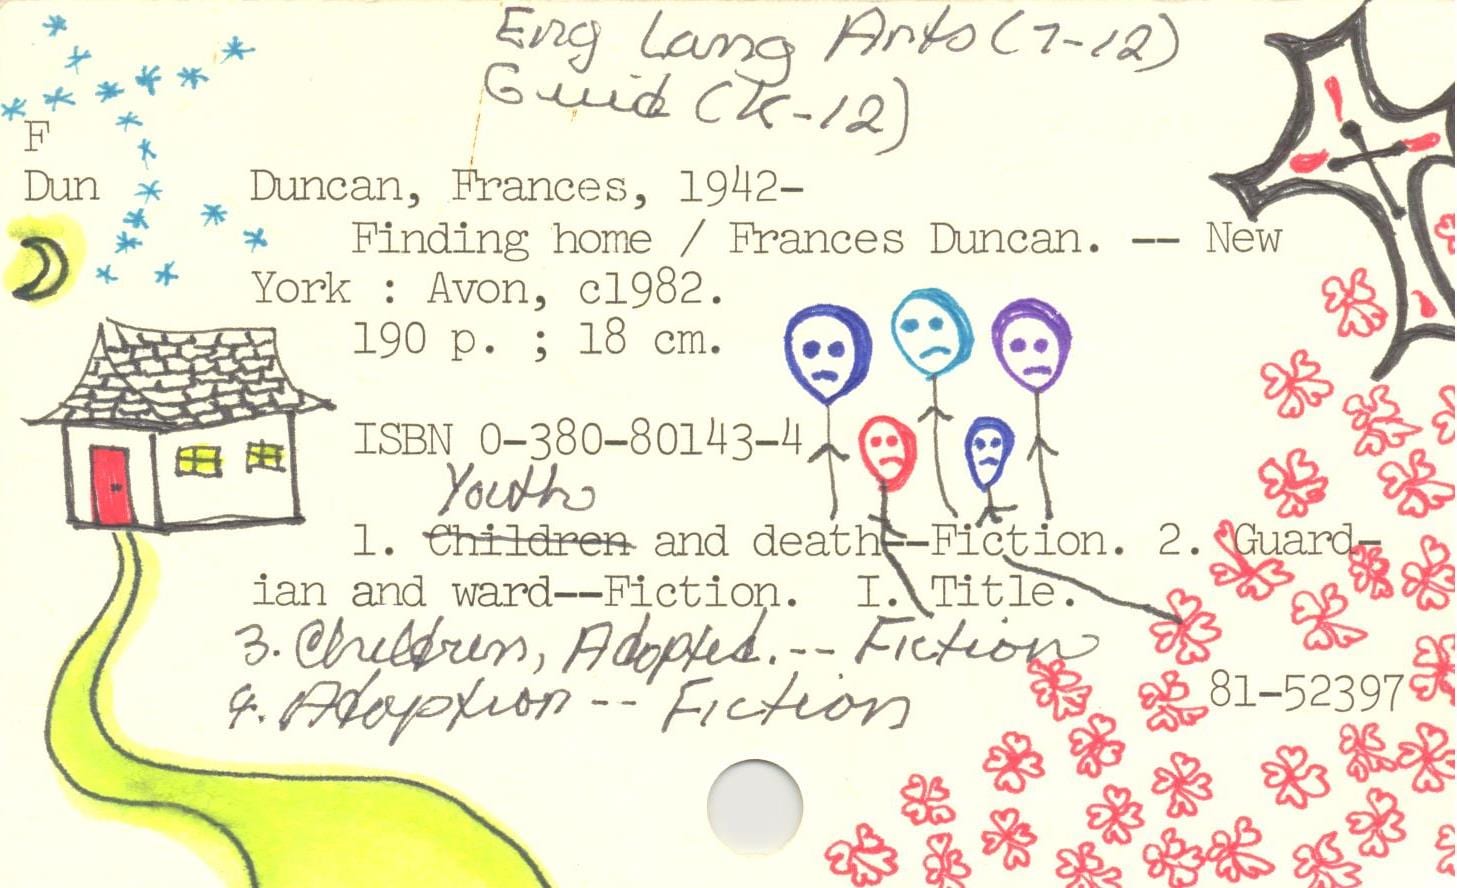 Eng Lang Arts (7-12)
Guid (K-12)
F
Dun
Duncan, Frances, 1942-
Finding home / Frances Duncan. -- New
York : Avon, c1982.
190 p. ; 18 cm.
ISBN 0-380-80143-4
Youth
1. Children and death--Fiction. 2. Guard-
ian and ward--Fiction. I. Title.
3. Children, Adopted.-- Fiction
4. Adoption -- Fiction
81-52397